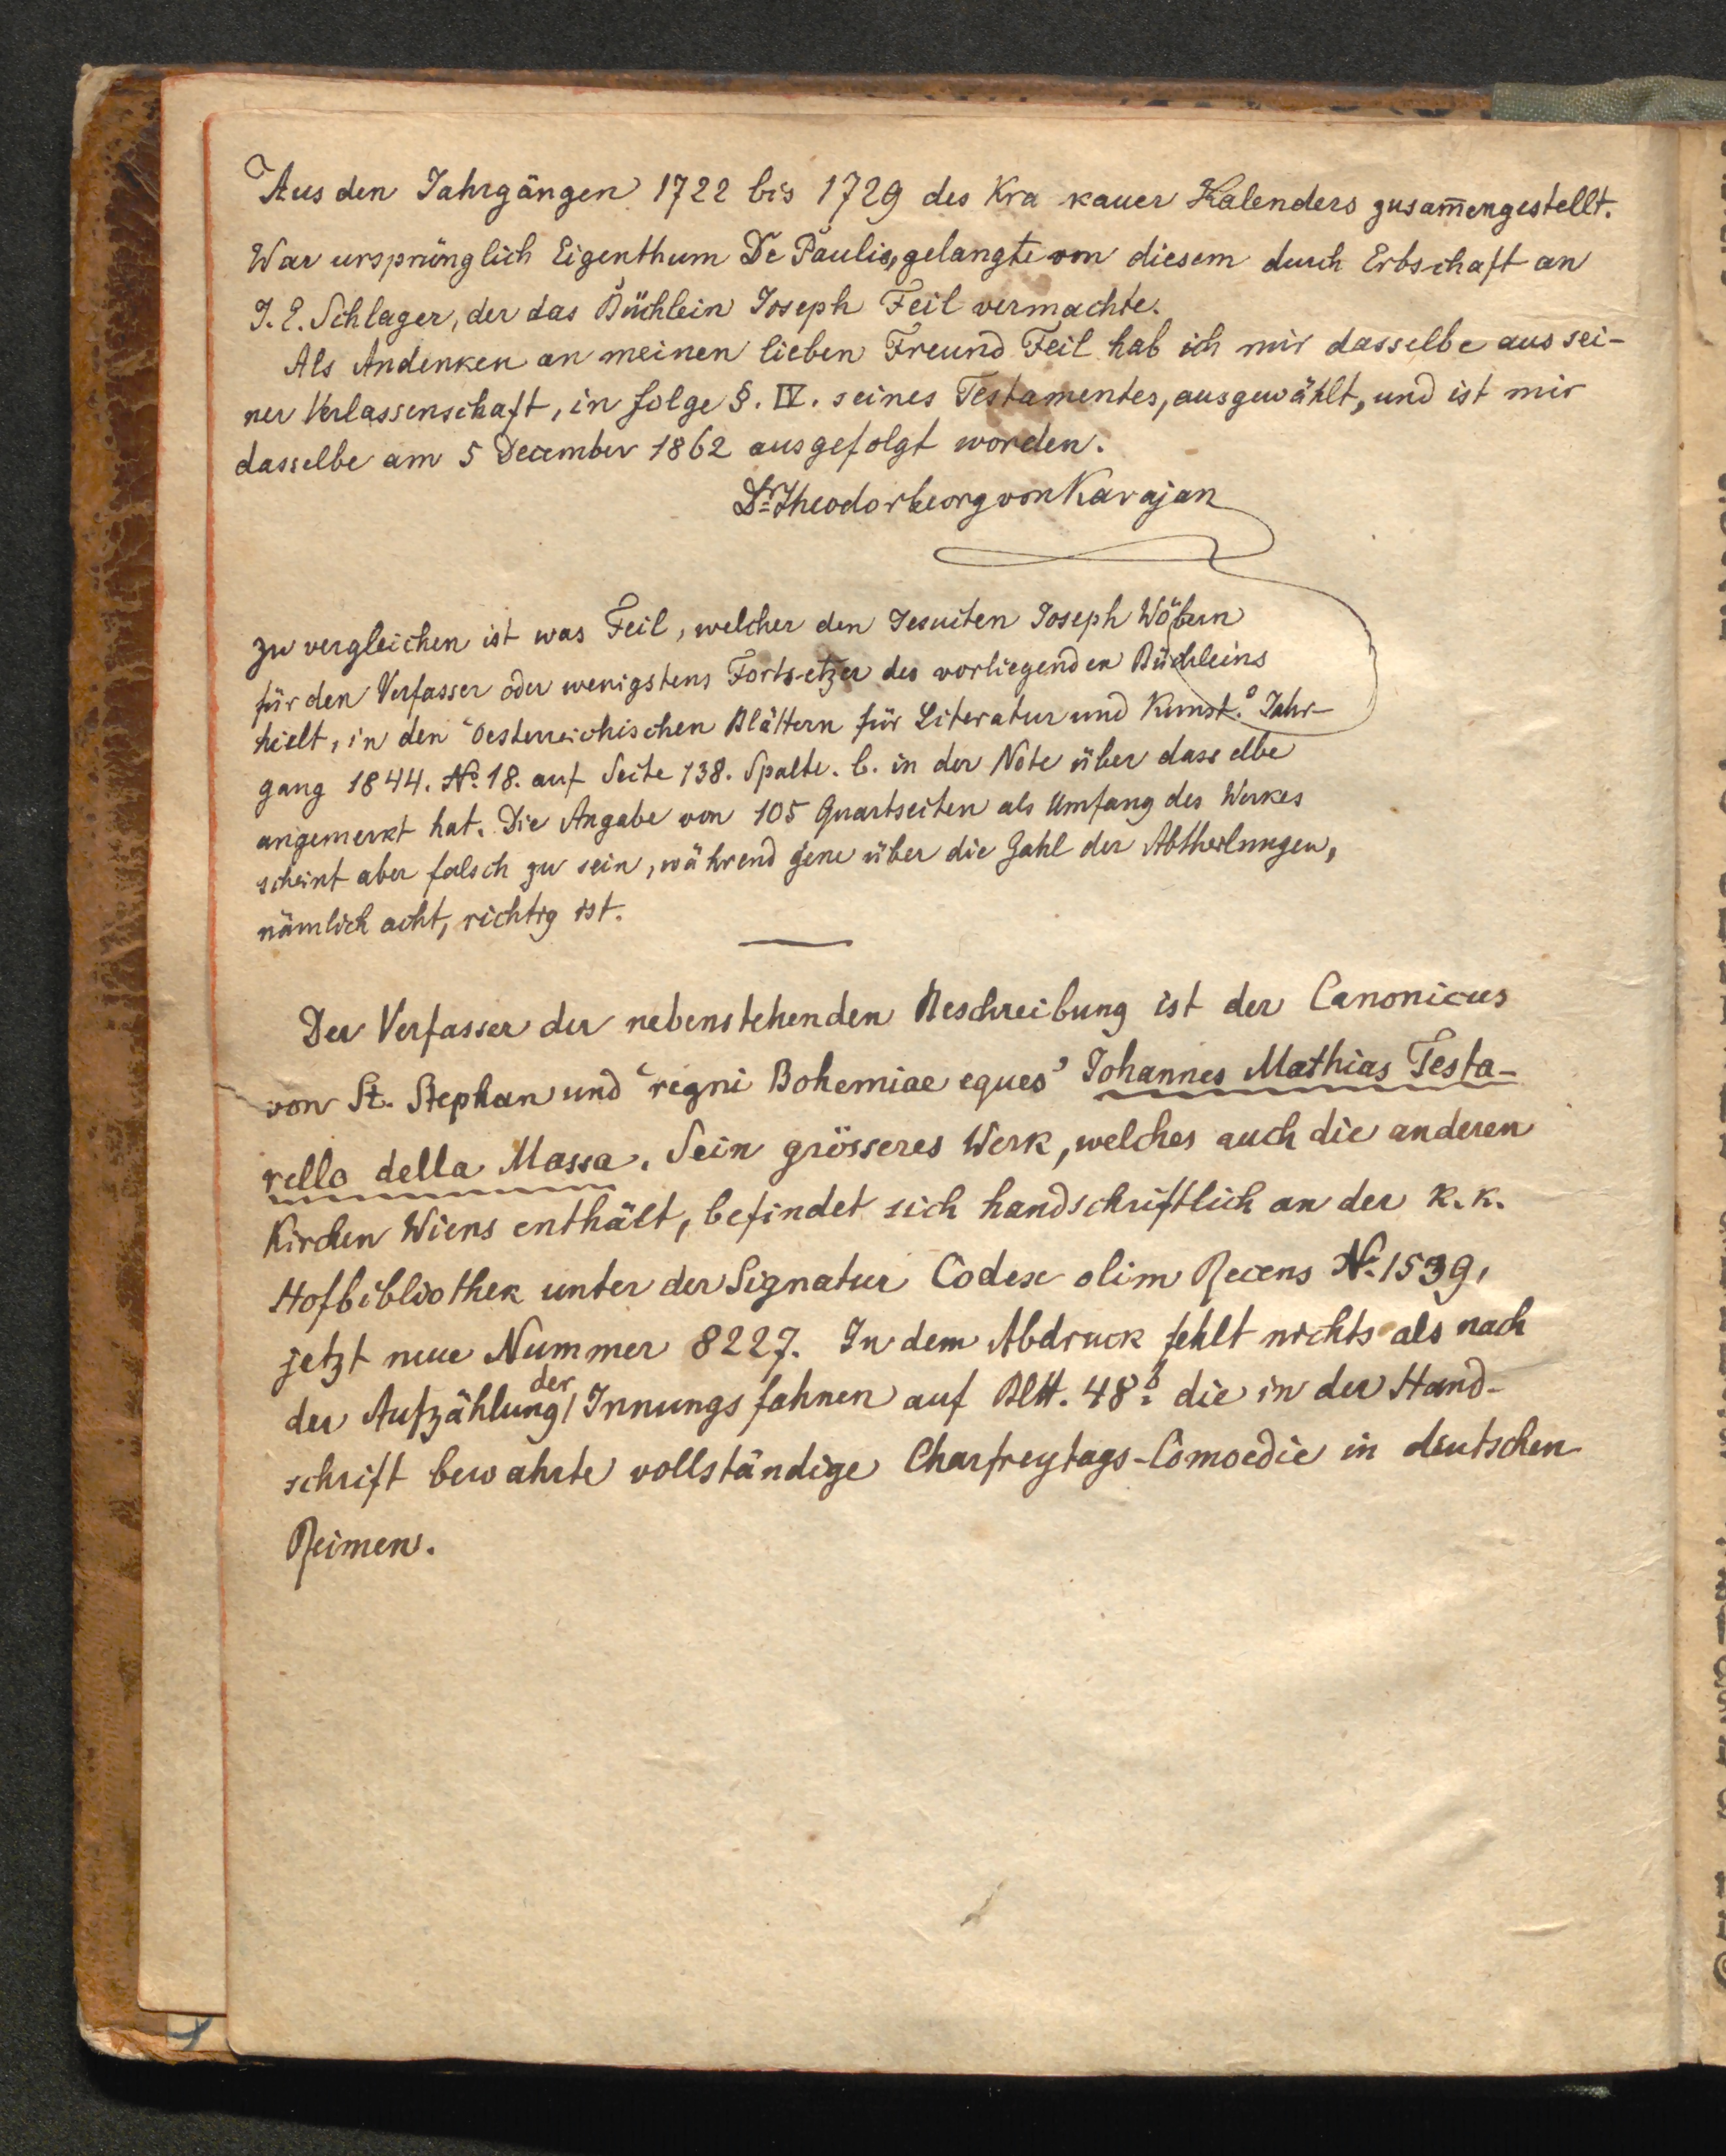 Aus den Jahrgängen 1722 bis 1729 des Krakauer Kalenders zusam̅engestellt.
War ursprünglich Eigenthum De Paulis, gelangte von diesem durch Erbschaft an
J. E. Schlager, der das Büchlein Joseph Feil vermachte.
Als Andenken an meinen lieben Freund Feil hab ich mir dasselbe aus sei-
ner Verlassenschaft, in folge §. IV. seines Testamentes, ausgewählt, und ist mir
dasselbe am 5 December 1862 ausgefolgt worden.
Dr Theodor Georg von Karajan
Zu vergleichen ist was Feil, welcher den Jesuiten Joseph Wöbern
für den Verfasser oder wenigstens Fortsetzer des vorliegenden Büchleins
hielt, in den "Oesterreichischen Blättern für Literatur und Kunst." Jahr-
gang 1844. No. 18. auf Seite 138. Spalte. b. in der Note über dasselbe
angemerkt hat. Die Angabe von 105 Quartseiten als Umfang des Werkes
scheint aber falsch zu sein, während jene über die Zahl der Abtheilungen,
nämlich acht, richtig ist.
Der Verfasser der nebenstehenden Beschreibung ist der Canonicus
von St. Stephan und 'regni Bohemiae eques' Johannes Mathias Testa-
rello della Massa. Sein grösseres Werk, welches auch die anderen
Kirchen Wiens enthält, befindet sich handschriftlich an der k. k.
Hofbibliothek unter der Signatur Codex olim Recens No. 1539,
jetzt neue Nummer 8227. In dem Abdruck fehlt nichts als nach
der Aufzählung der Innungsfahnen auf Bltt. 48b. die in der Hand-
schrift bewahrte vollständige Charfreytags-Comoedie in deutschen
Reimen.